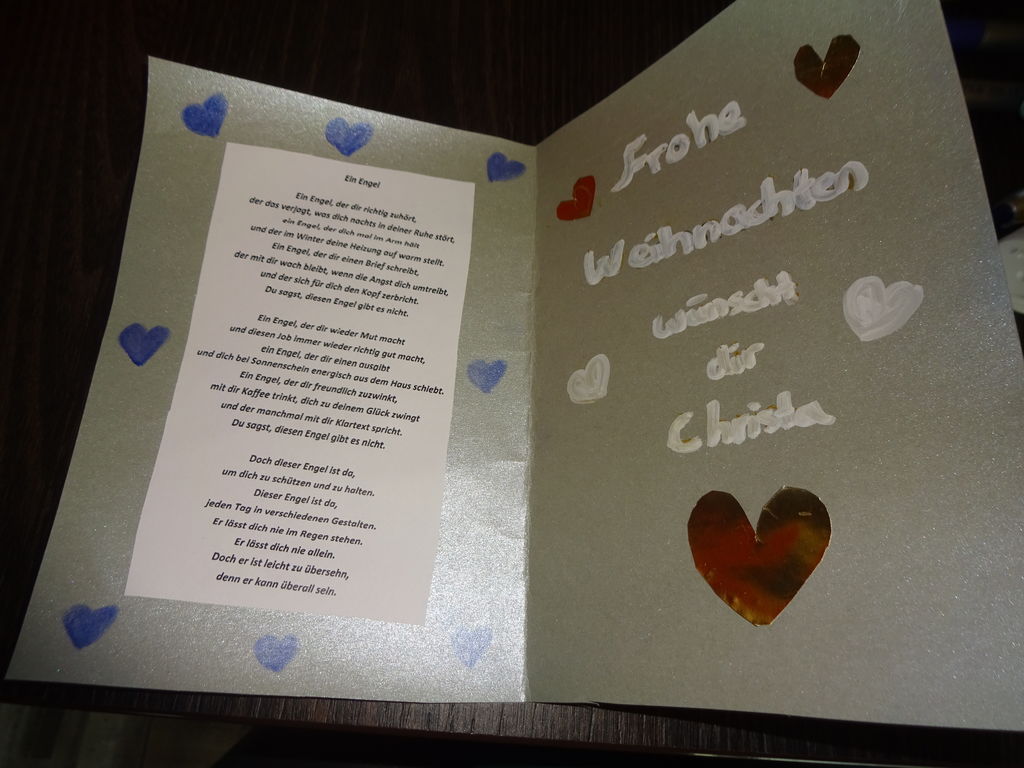 Ein Engel
Ein Engel, der dir richtig zuhört,
der das verjagt, was dich nachts in deiner Ruhe stört,
ein Engel, der dich mal im Arm hält
und der im Winter deine Heizung auf warm stellt.
Ein Engel, der dir einen Brief schreibt,
der mit dir wach bleibt, wenn die Angst dich umtreibt,
und der sich für dich den Kopf zerbricht.
Du sagst, diesen Engel gibt es nicht.
Ein Engel, der dir wieder Mut macht
und diesen Job immer wieder richtig gut macht,
ein Engel, der dir einen ausgibt
und dich bei Sonnenschein energisch aus dem Haus schiebt.
Ein Engel, der dir freundlich zuzwinkt,
mit dir Kaffee trinkt, dich zu deinem Glück zwingt
und der manchmal mit dir Klartext spricht.
Du sagst, diesen Engel gibt es nicht.
Doch dieser Engel ist da,
um dich zu schützen und zu halten.
Dieser Engel ist da,
jeden Tag in verschiedenen Gestalten.
Er lässt dich nie im Regen stehen.
Er lässt dich nie allein.
Doch er ist leicht zu übersehn,
denn er kann überall sein.
Frohe
Weihnachten
wünscht
dir
Christa